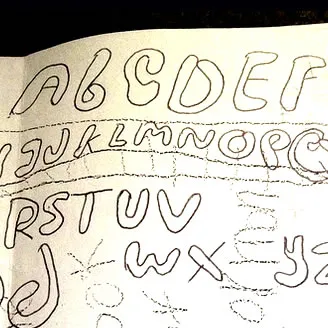 AbCDEF
IJUKLMNOPQ
RSTUV
WX YZ